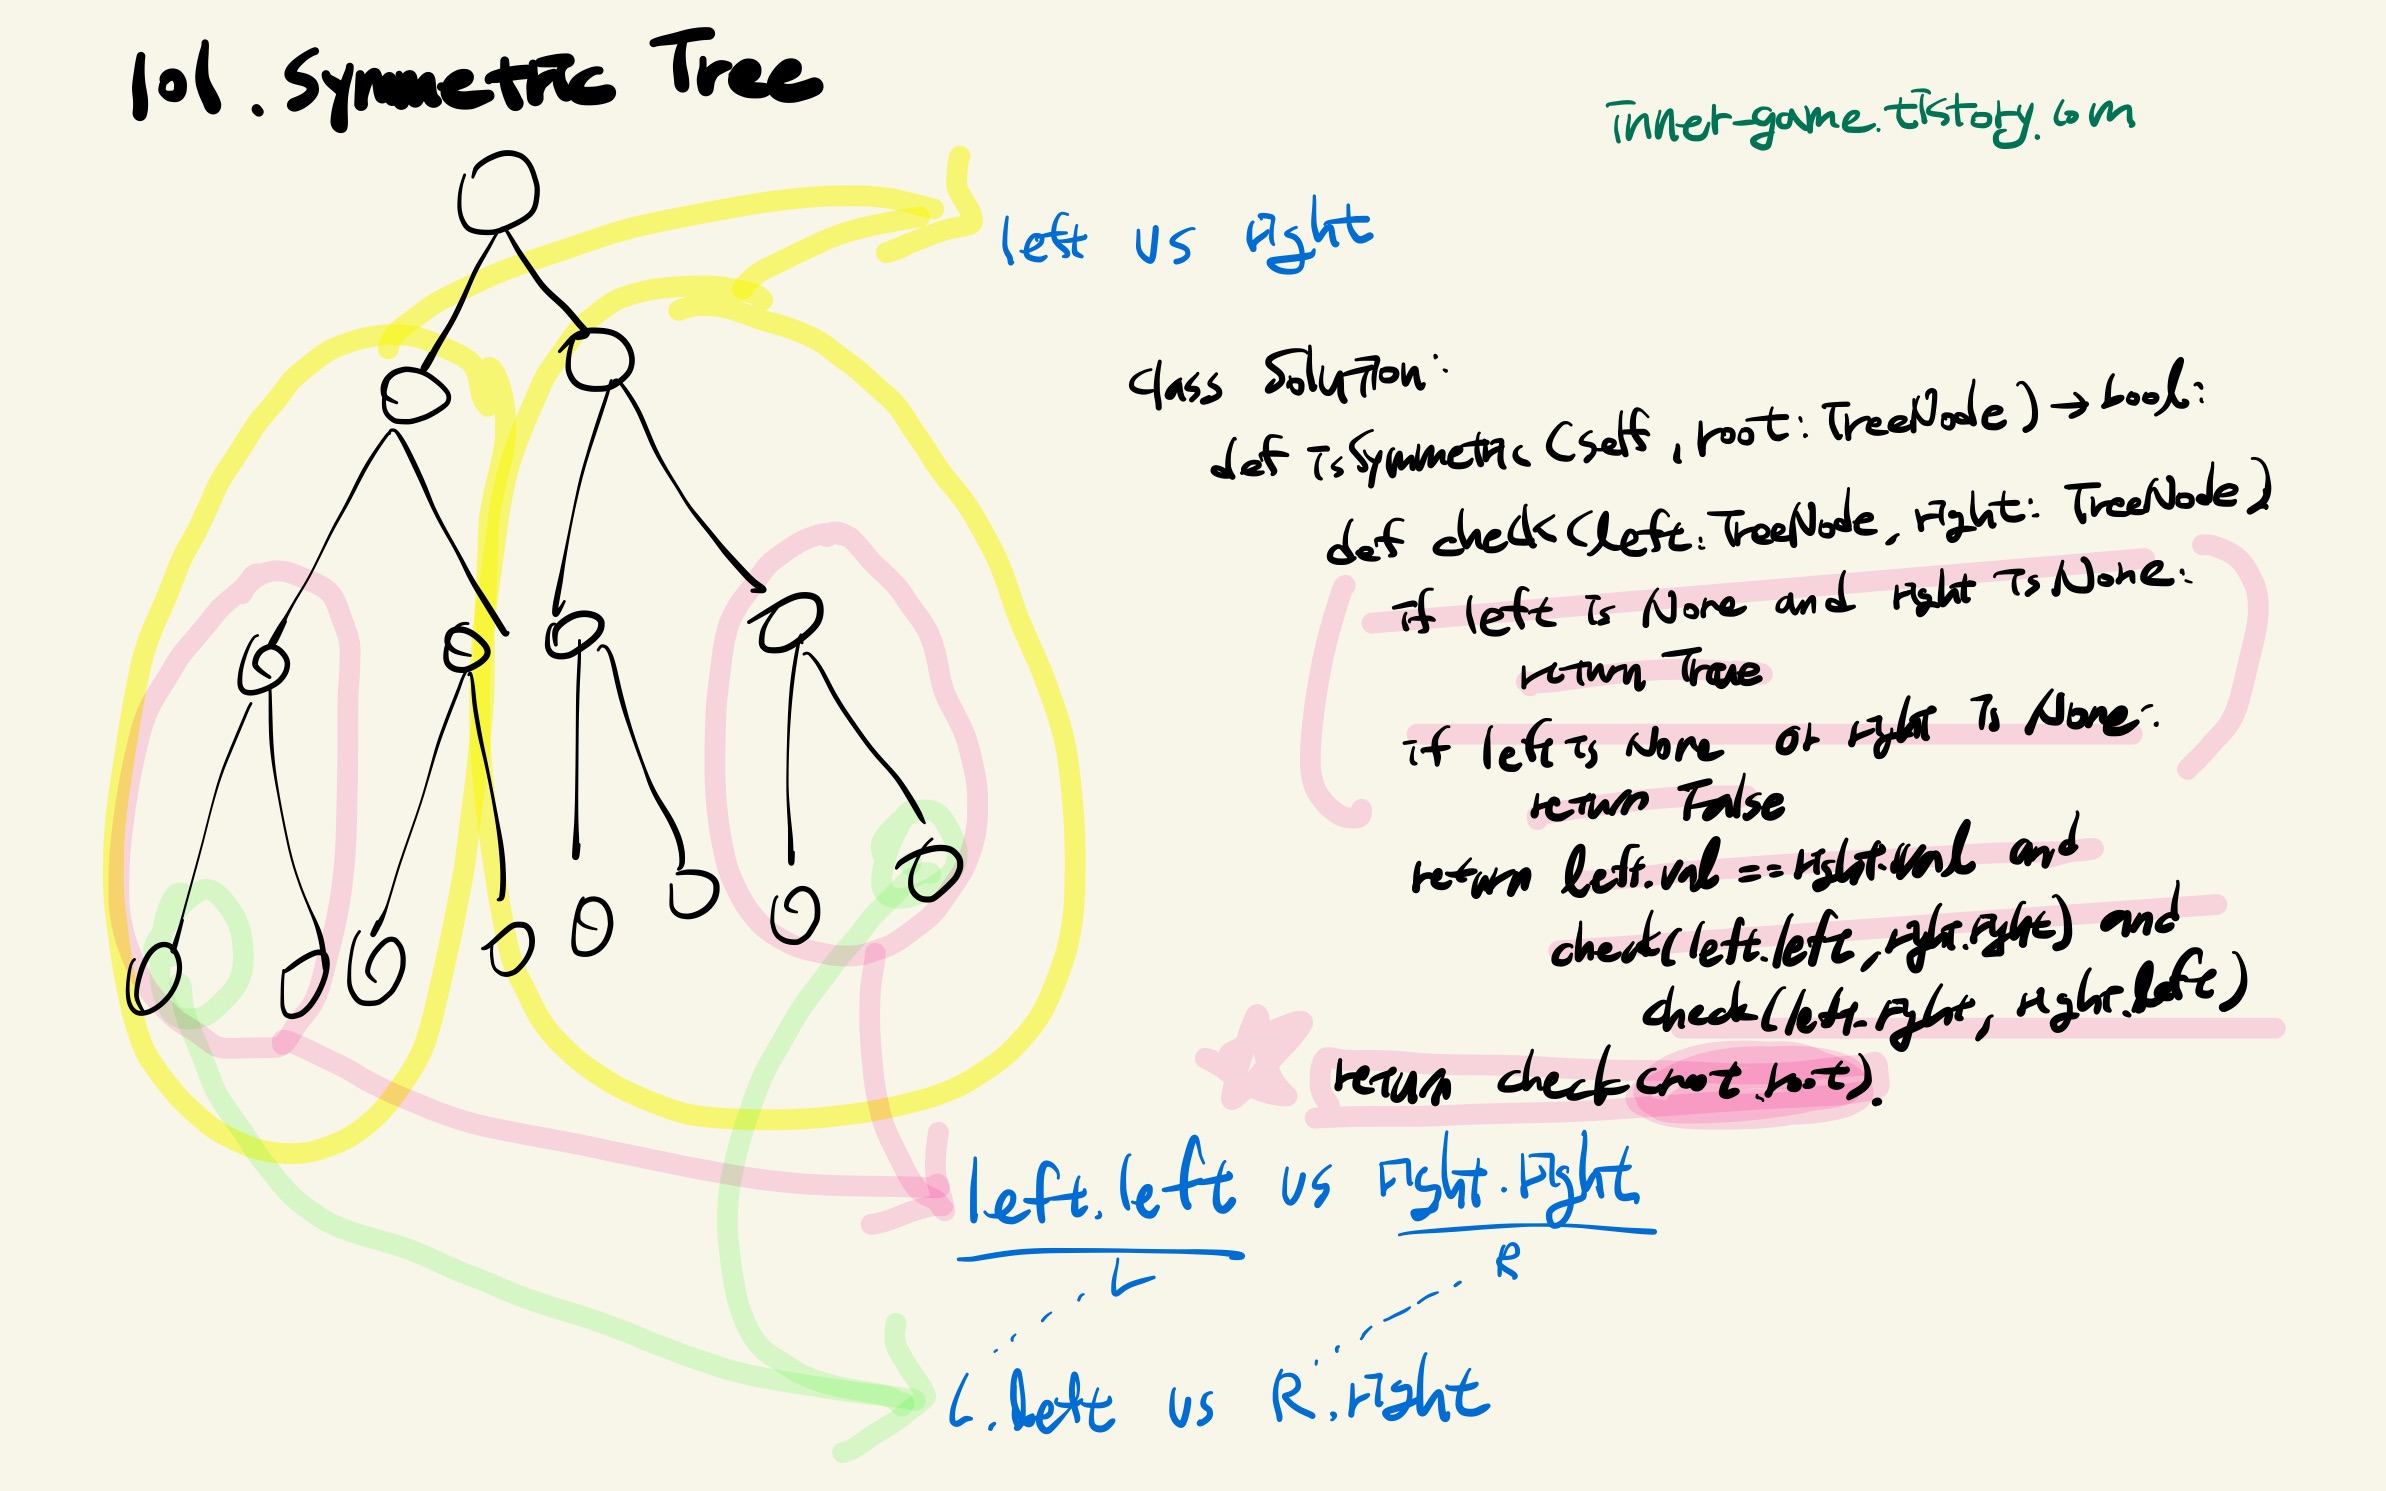 101. Symmetric Tree
inner-game.tistory.com
left vs right
class Solution:
def isSymmetric (self, root: TreeNode) → bool:
def check(left: TreeNode, right: TreeNode)
if left is None and right is None:
return True
if left is None or right is None:
return False
return left.val == right.val and
check(left.left, right.right) and
check(left.right, right.left)
return check(root, root).
left.left vs right.right
L R
L.left vs R.right